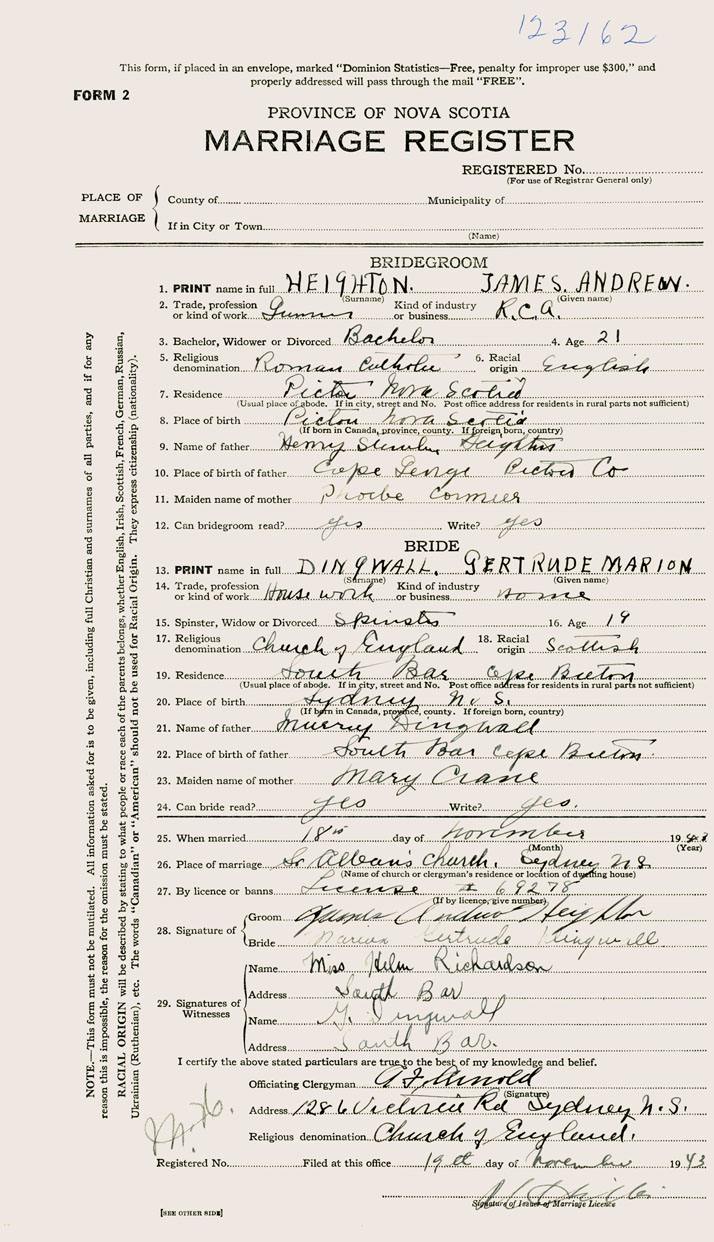 123162
This form, if placed in an envelope, marked "Dominion Statistics—Free, penalty for improper use $300," and
properly addressed will pass through the mail "FREE".
FORM 2
PROVINCE OF NOVA SCOTIA
MARRIAGE REGISTER
REGISTERED No.
(For use of Registrar General only)
PLACE OF MARRIAGE
County of Municipality of
If in City or Town
(Name)
BRIDEGROOM
1. PRINT name in full HEIGHTON. JAMES. ANDREW.
(Surname) (Given name)
2. Trade, profession or kind of work Gunner Kind of industry or business R.C.A.
3. Bachelor, Widower or Divorced Bachelor 4. Age 21
5. Religious denomination Roman Catholic 6. Racial origin English
7. Residence Pictou Nova Scotia
(Usual place of abode. If in city, street and No. Post office address for residents in rural parts not sufficient)
8. Place of birth Pictou Nova Scotia
(If born in Canada, province, county. If foreign born, country)
9. Name of father Henry Heighton
10. Place of birth of father Cape George Pictou Co
11. Maiden name of mother Phoebe Cormier
12. Can bridegroom read? yes Write? yes
BRIDE
13. PRINT name in full DINGWALL. GERTRUDE MARION
(Surname) (Given name)
14. Trade, profession or kind of work House work Kind of industry or business Home
15. Spinster, Widow or Divorced Spinster 16. Age 19
17. Religious denomination Church of England 18. Racial origin Scottish
19. Residence South Bar Cape Breton
(Usual place of abode. If in city, street and No. Post office address for residents in rural parts not sufficient)
20. Place of birth Sydney N.S.
(If born in Canada, province, county. If foreign born, country)
21. Name of father Murry Dingwall
22. Place of birth of father South Bar Cape Breton.
23. Maiden name of mother Mary Crane
24. Can bride read? yes Write? yes.
25. When married 18th day of November 19
(Month) (Year)
26. Place of marriage St Albans Church. Sydney N S
(Name of church or clergyman's residence or location of dwelling house)
27. By licence or banns License # 69278
(If by licence, give number)
28. Signature of
Groom James Andrew Heighton
Bride Marion Gertrude Dingwall
29. Signatures of Witnesses
Name Miss Helen Richardson
Address South Bar
Name G. Dingwall
Address South Bar.
I certify the above stated particulars are true to the best of my knowledge and belief.
Officiating Clergyman A F Arnold
(Signature)
Address 1286 Victoria Rd Sydney N.S.
Religious denomination Church of England.
Registered No. Filed at this office 19th day of November 1943
Signature of Issuer of Marriage Licence
[SEE OTHER SIDE]
NOTE.—This form must not be mutilated. All information asked for is to be given, including full Christian and surnames of all parties, and if for any
reason this is impossible, the reason for the omission must be stated.
RACIAL ORIGIN will be described by stating to what people or race each of the parents belongs, whether English, Irish, Scottish, French, German, Russian,
Ukrainian (Ruthenian), etc. The words "Canadian" or "American" should not be used for Racial Origin. They express citizenship (nationality).